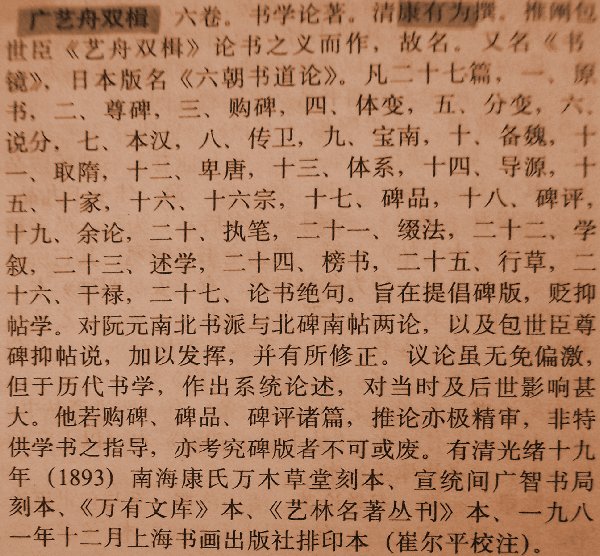 广艺舟双楫 六卷。书学论著。清康有为撰。推阐包
世臣《艺舟双楫》论书之义而作，故名。又名《书
镜》，日本版名《六朝书道论》。凡二十七篇，一、原
书，二、尊碑，三、购碑，四、体变，五、分变，六、
说分，七、本汉，八、传卫，九、宝南，十、备魏，十
一、取隋，十二、卑唐，十三、体系，十四、导源，十
五、十家，十六、十六宗，十七、碑品，十八、碑评，
十九、余论，二十、执笔，二十一、缀法，二十二、学
叙，二十三、述学，二十四、榜书，二十五、行草，二
十六、干禄，二十七、论书绝句。旨在提倡碑版，贬抑
帖学。对阮元南北书派与北碑南帖两论，以及包世臣尊
碑抑帖说，加以发挥，并有所修正。议论虽无免偏激，
但于历代书学，作出系统论述，对当时及后世影响甚
大。他若购碑、碑品、碑评诸篇，推论亦极精审，非特
供学书之指导，亦考究碑版者不可或废。有清光绪十九
年（1893）南海康氏万木草堂刻本、宣统间广智书局
刻本、《万有文库》本、《艺林名著丛刊》本、一九八
一年十二月上海书画出版社排印本（崔尔平校注）。